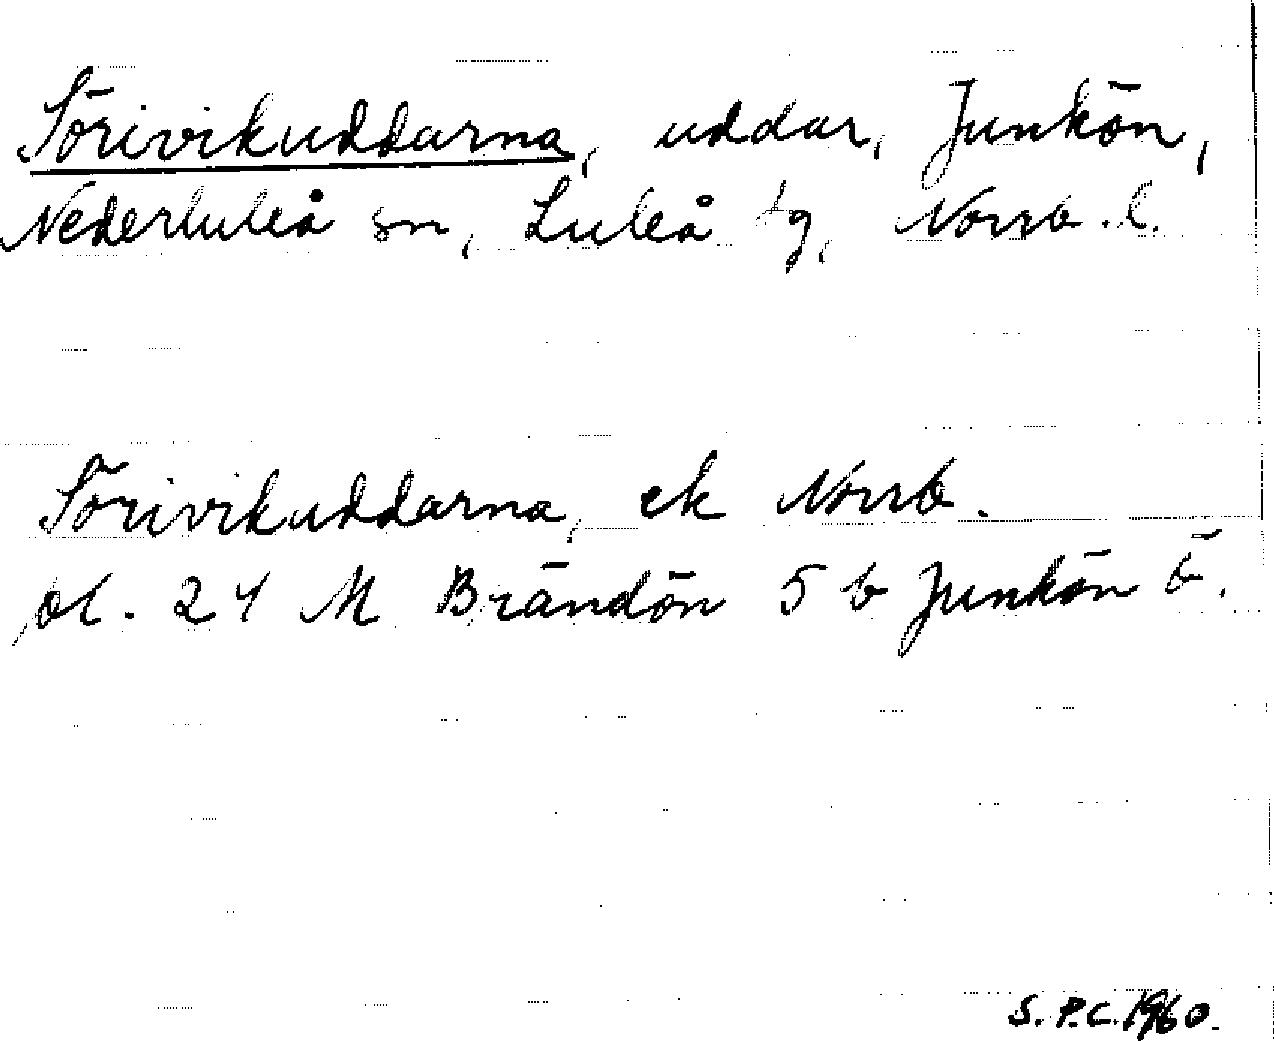 Sörivikuddarna, uddar, Junkön,
Nederluleå sn, Luleå tg, Norrb. l.
Sörivikuddarna, ek Norrb.
bl. 24 M Brändön 5 b Junkön ö.
S.P.C. 1960.